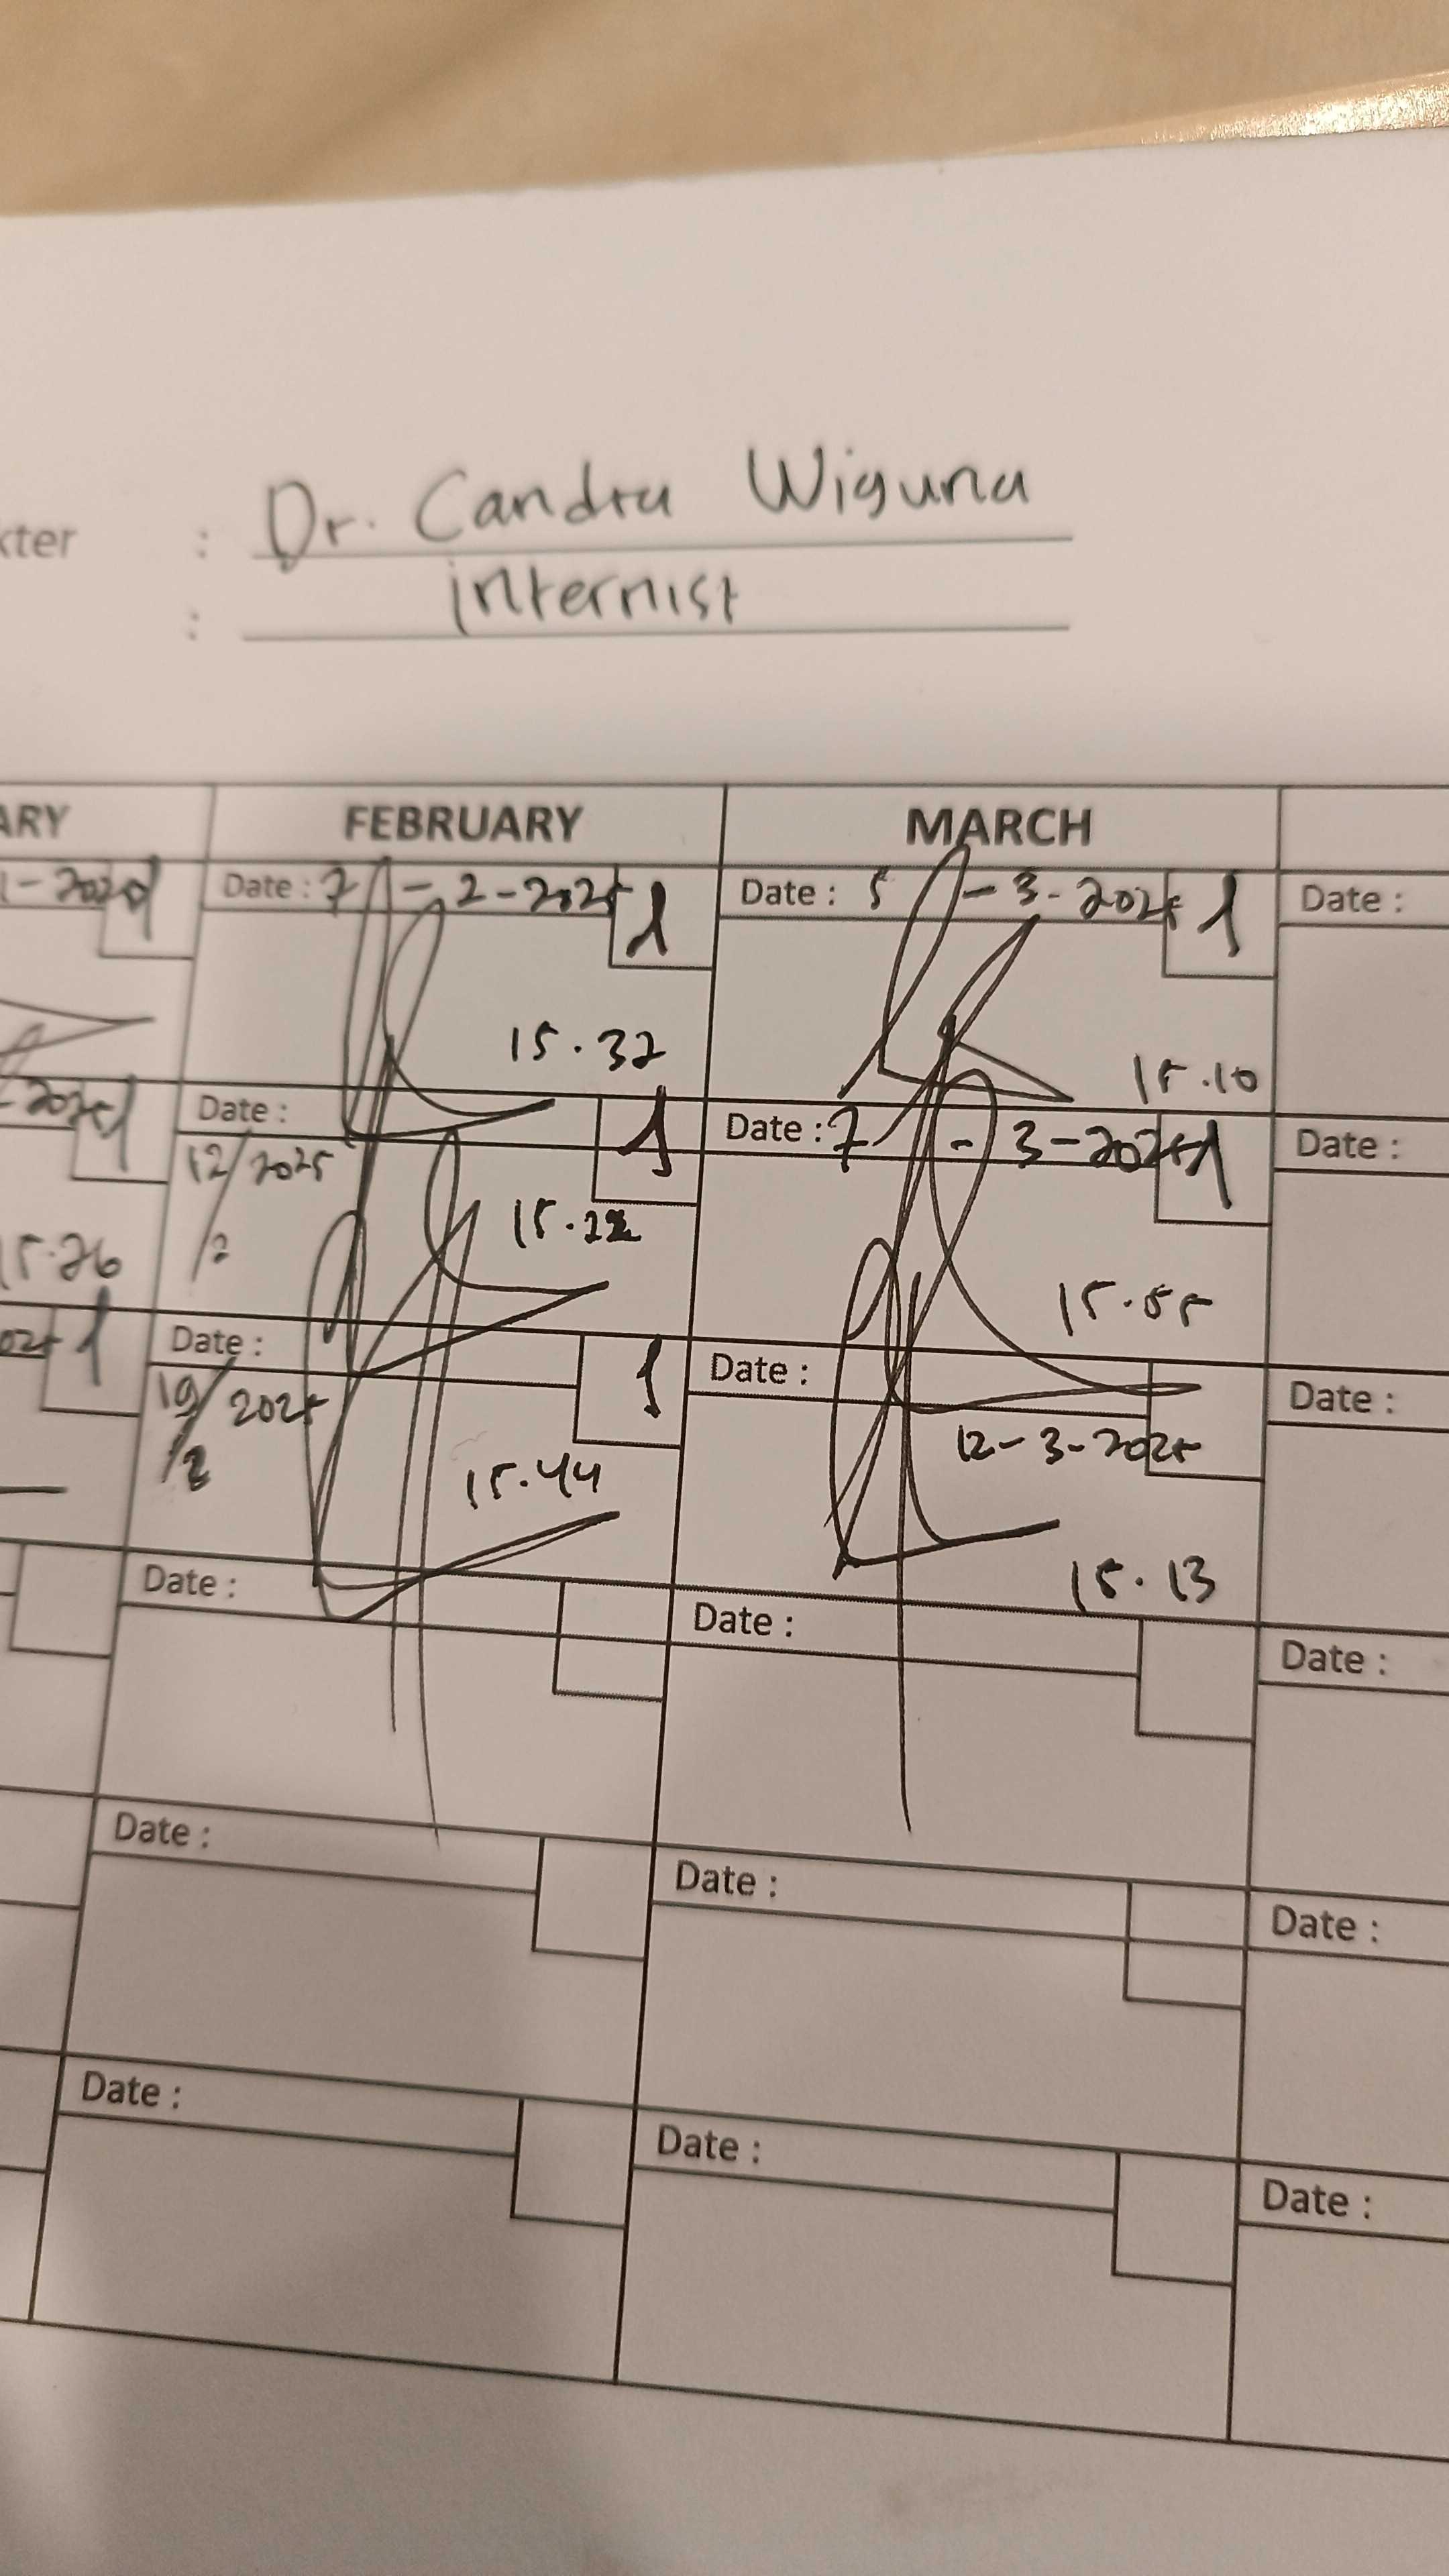 kter : Dr. Candra Wiguna
: internist
ARY FEBRUARY MARCH
Date : 7 - 2 - 2025 1 Date : 5 - 3 - 2025 1 Date :
15.32 15.10
Date : 1 Date : 7 - 3 - 2025 1 Date :
12/2025
/2
15.26 15.22 15.55
Date : 1 Date : Date :
19/2025 12 - 3 - 2025
/2
15.44 15.13
Date : Date : Date :
Date : Date : Date :
Date : Date : Date :